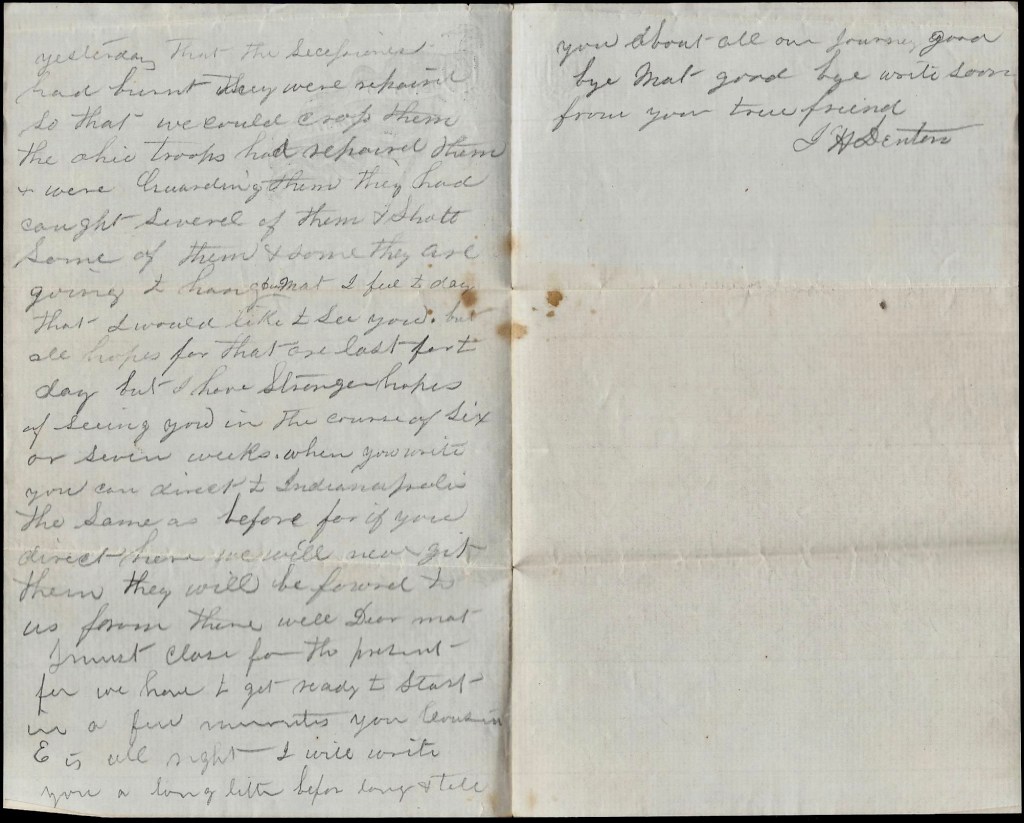 yesterday that the Secesionest
had burnt they were repaird
So that we could crofs them
the ohio troops had repaird them
& were Guarding them they had
caught Severel of them & Shott
Some of them & some they are
going to hang Mat I feel to day
that I would like to See you. but
all hopes for that are last for to
day but I have Stronger hopes
of Seeing you in the course of Six
or Seven weeks. when you write
you can direct to Indianapolis
the Same as before for if you
direct here we will never git
them they will be forwrd to
us from there well Dear mat
I must close for the present
for we have to get ready to Start
in a few minutes you Cousin
E is all right I will write
you a long lettr befor long & tell
you about all our Journey good
bye Mat good bye write soon
from your true friend
J H Denton